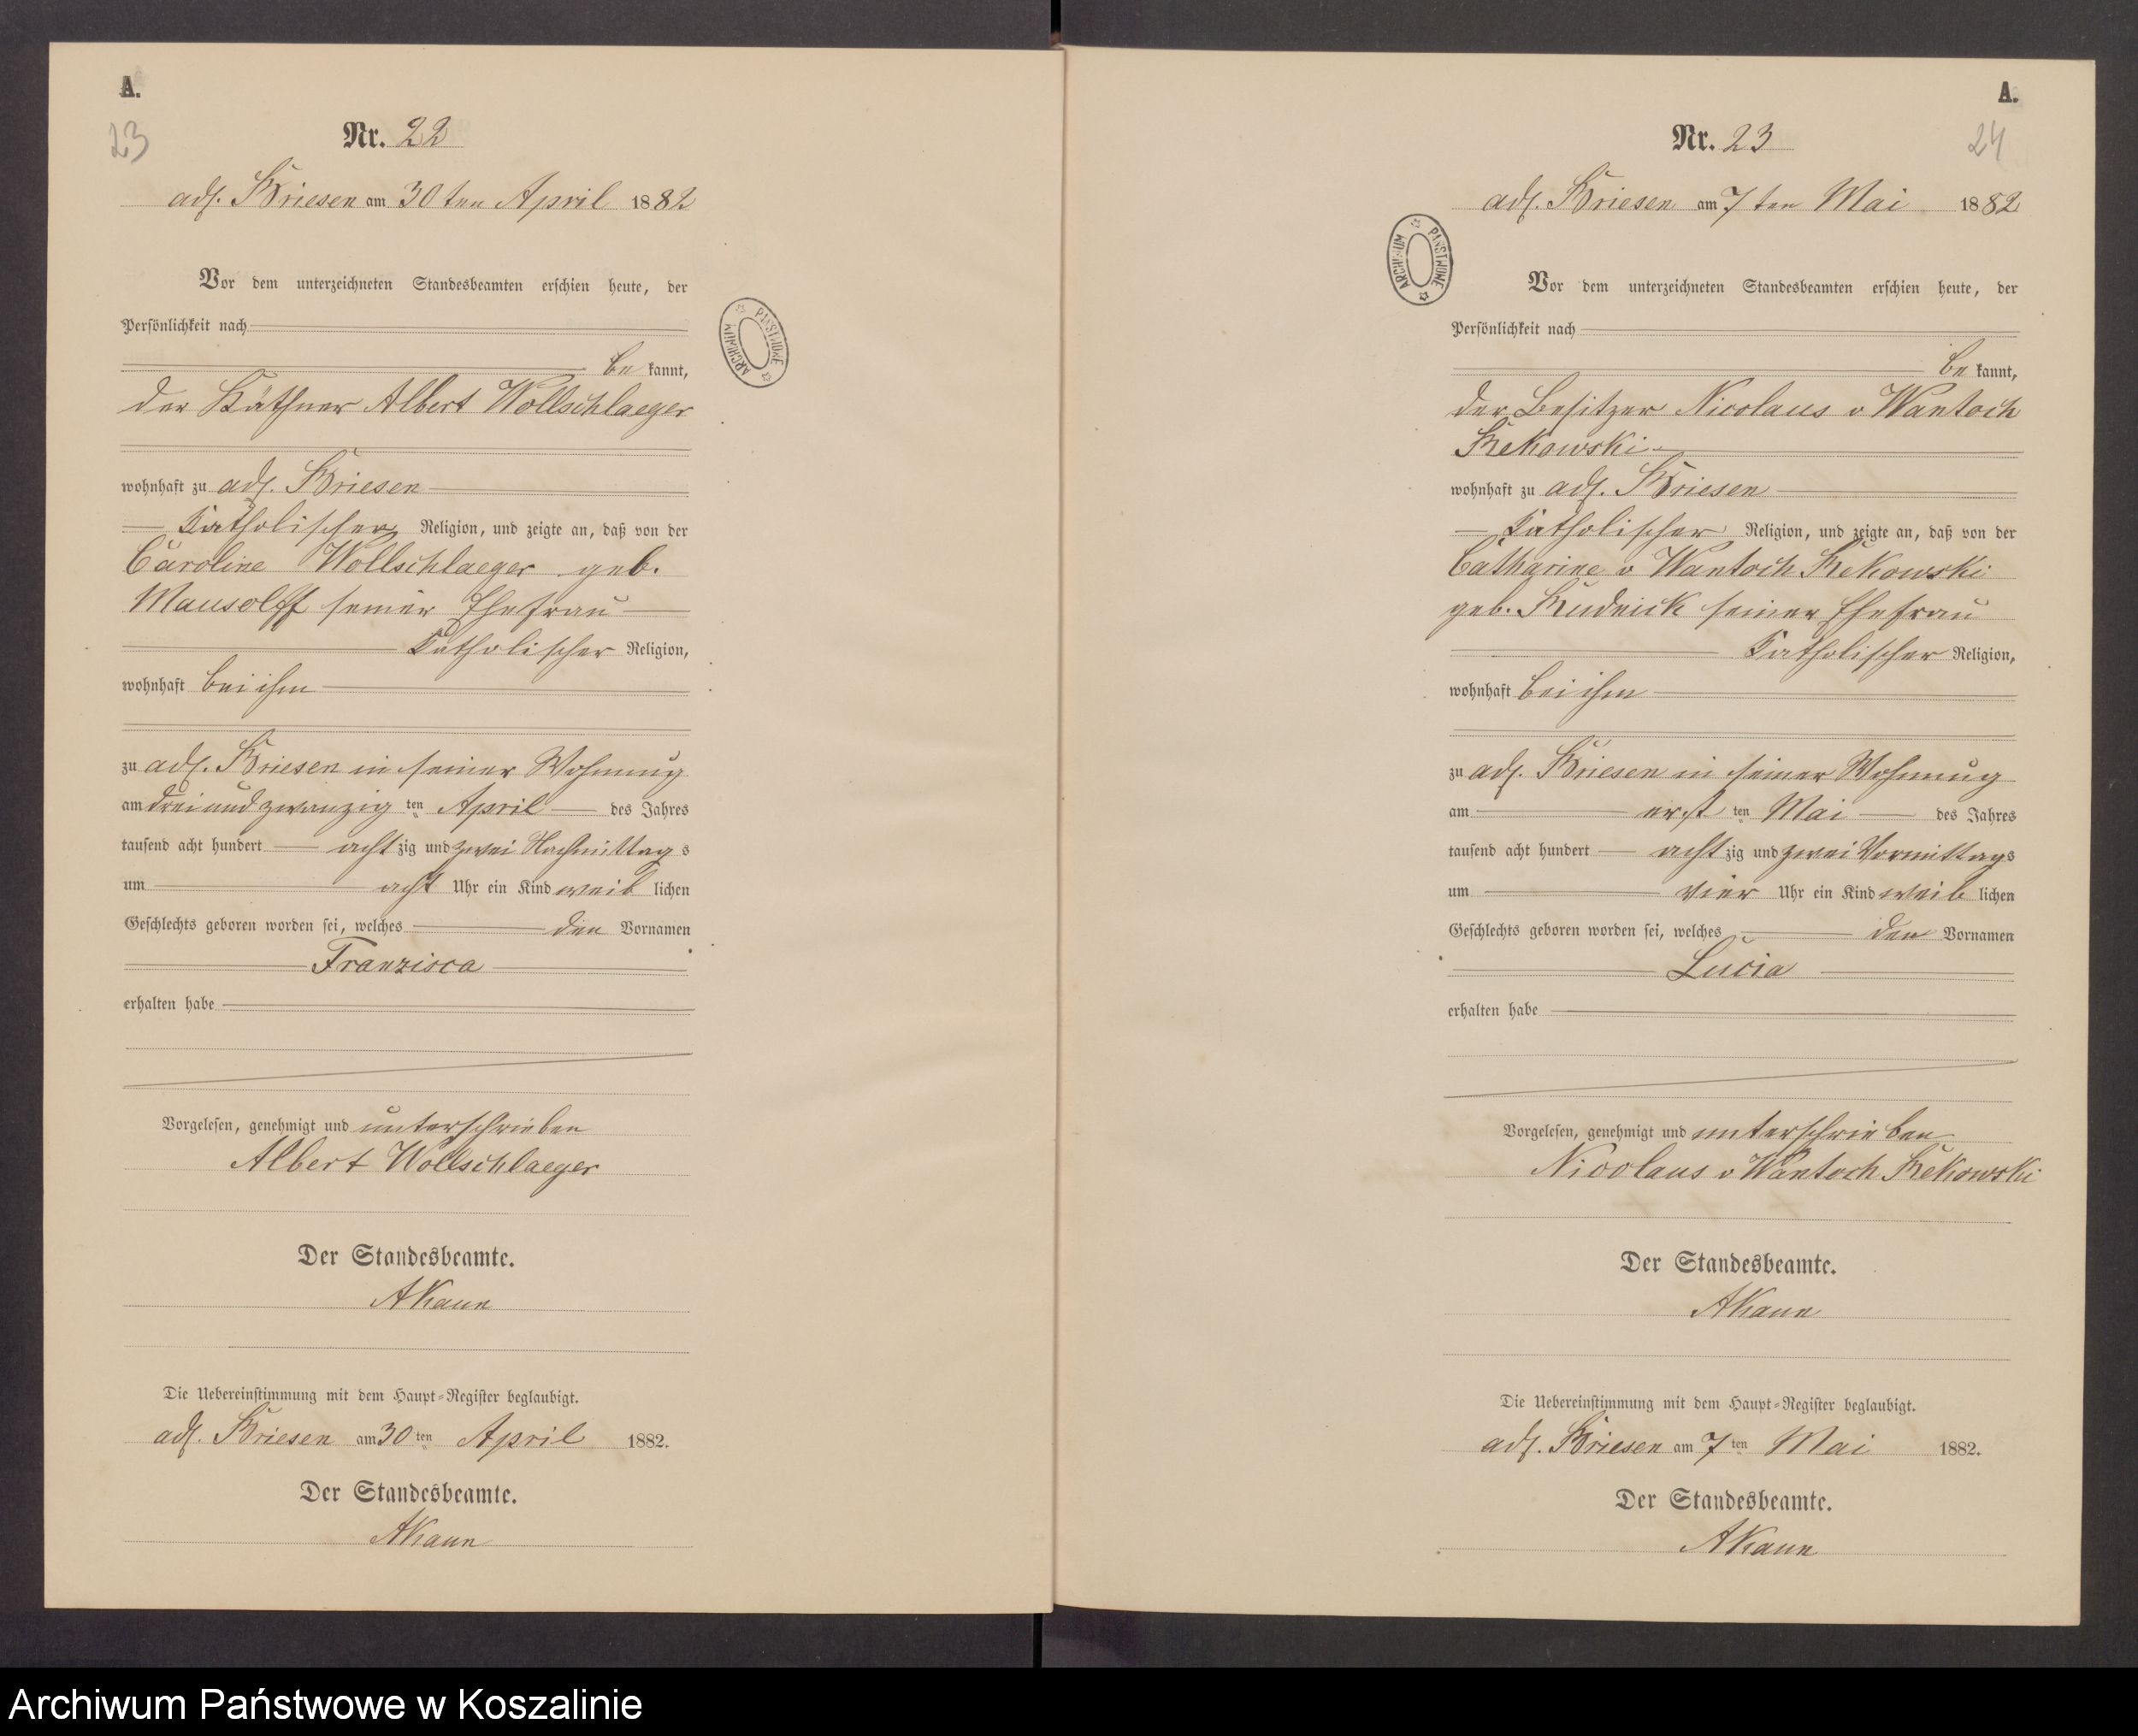 A.
23
Nr. 22
adl. Briesen am 30ten April 1882
Vor dem unterzeichneten Standesbeamten erschien heute, der
Persönlichkeit nach
be kannt,
der Käthner Albert Wollschlaeger
wohnhaft zu adl. Briesen
katholischer Religion, und zeigte an, daß von der
Caroline Wollschlaeger geb.
Mausolff seiner Ehefrau
katholischer Religion,
wohnhaft bei ihm
zu adl. Briesen in seiner Wohnung
am drei und zwanzig ten April des Jahres
tausend acht hundert acht zig und zwei Nachmittag s
um acht Uhr ein Kind weib lichen
Geschlechts geboren worden sei, welches den Vornamen
Franzisca
erhalten habe
Vorgelesen, genehmigt und unterschrieben
Albert Wollschlaeger
Der Standesbeamte.
AKaun
Die Uebereinstimmung mit dem Haupt-Register beglaubigt.
adl. Briesen am 30 ten April 1882.
Der Standesbeamte.
AKaun
ARCHIWUM PAŃSTWOWE
A.
24
Nr. 23
adl. Briesen am 7ten Mai 1882
ARCHIWUM PAŃSTWOWE
Vor dem unterzeichneten Standesbeamten erschien heute, der
Persönlichkeit nach
be kannt,
der Besitzer Nicolaus v Wantoch
Rekowski
wohnhaft zu adl. Briesen
katholischer Religion, und zeigte an, daß von der
Catharine v Wantoch Rekowski
geb. Rudnick seiner Ehefrau
katholischer Religion,
wohnhaft bei ihm
zu adl. Briesen in seiner Wohnung
am erst ten Mai des Jahres
tausend acht hundert acht zig und zwei Vormittags
um vier Uhr ein Kind weib lichen
Geschlechts geboren worden sei, welches den Vornamen
Lucia
erhalten habe
Vorgelesen, genehmigt und unterschrieben
Nicolaus v Wantoch Rekowski
Der Standesbeamte.
AKaun
Die Uebereinstimmung mit dem Haupt-Register beglaubigt.
adl. Briesen am 7 ten Mai 1882.
Der Standesbeamte.
AKaun
Archiwum Państwowe w Koszalinie